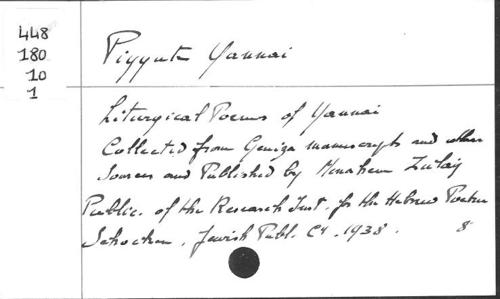 448
180
10
1
Piyyute Yannai
Liturgical Poems of Yannai
Collected from Geniza manuscripts and other
Sources and Published by Menahem Zulay
Public. of the Research Inst. for the Hebrew Poetry
Schocken. Jewish Publ. Cy. 1938.
8